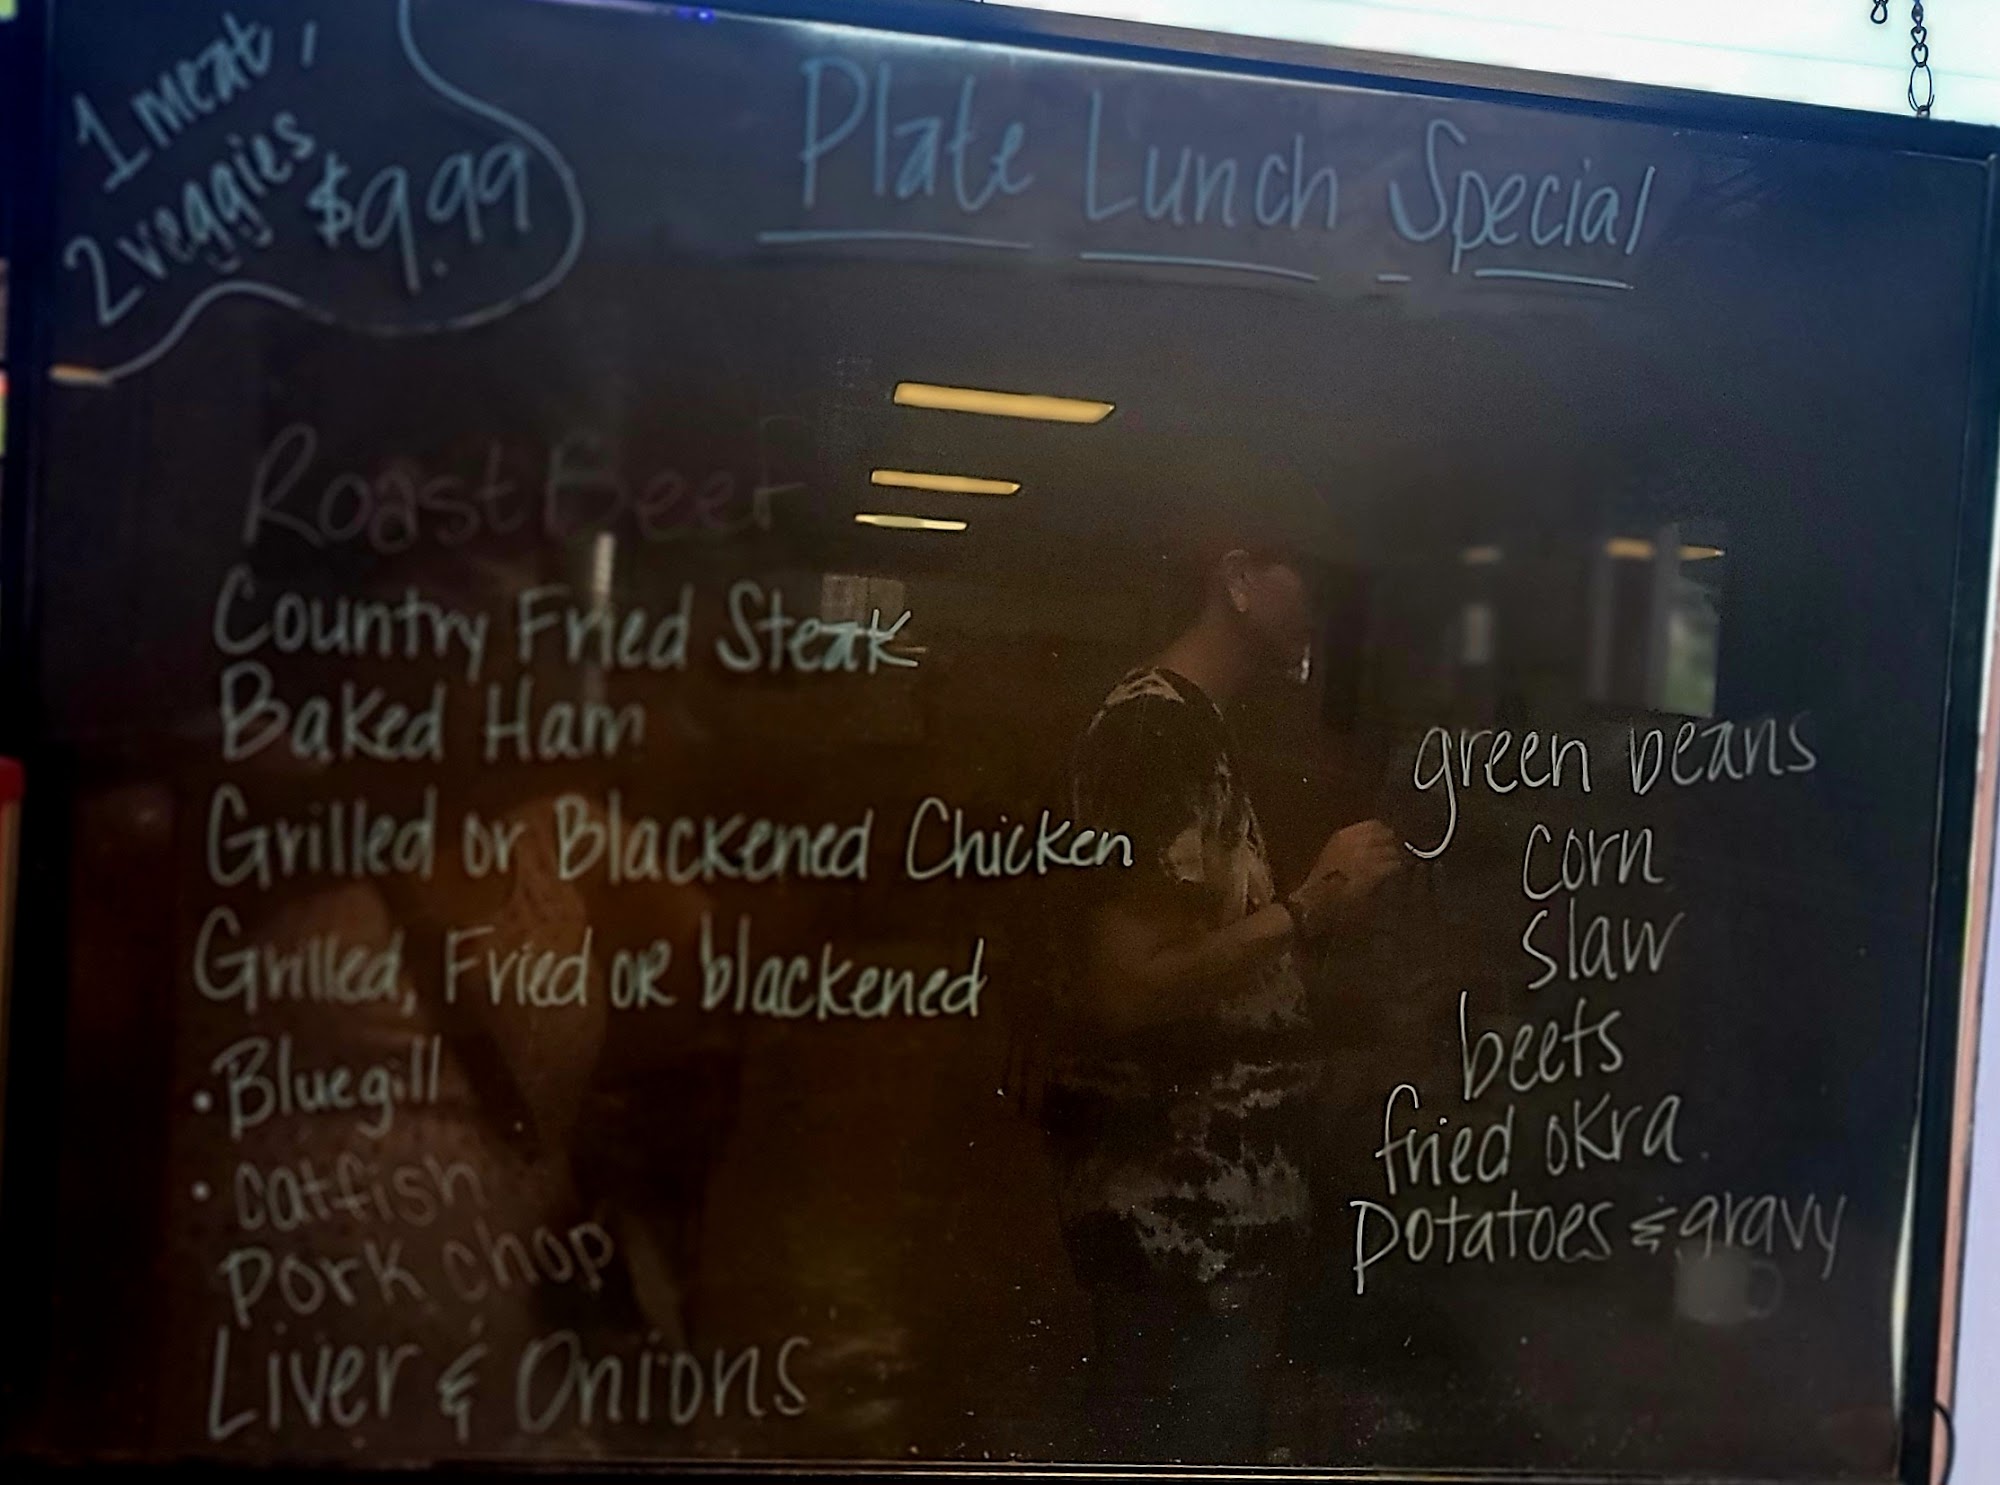 1 meat,
2 veggies
$9.99
Plate Lunch Special
Roast Beef
Country Fried Steak
Baked Ham
Grilled or Blackened Chicken
Grilled, Fried or blackened
• Bluegill
• Catfish
Pork chop
Liver & Onions
green beans
corn
slaw
beets
fried okra
potatoes & gravy